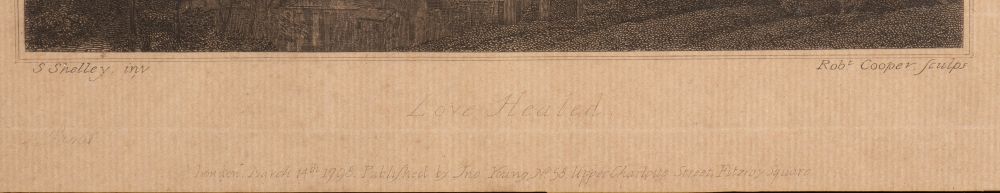 S Shelley. inv
Robt Cooper sculps
Love Healed
Proof
London. March 14th 1798. Published by Jno Young No 58 Upper Charlotte Street, Fitzroy Square